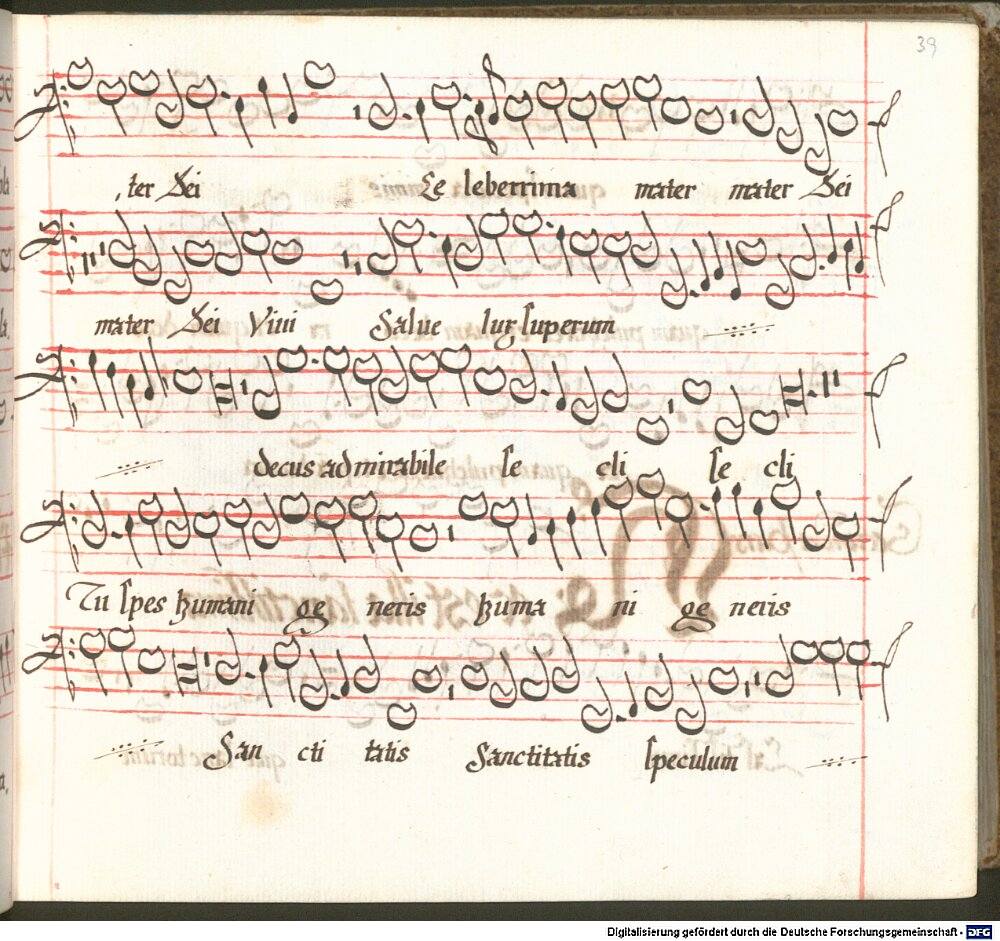 39
ter Dei Ce leberrima mater mater Dei
mater Dei Viui Salue lux superum
decus admirabile se cli se cli
Tu spes humani ge neris huma ni ge neris
San cti tatis Sanctitatis speculum
Digitalisierung gefördert durch die Deutsche Forschungsgemeinschaft - DFG